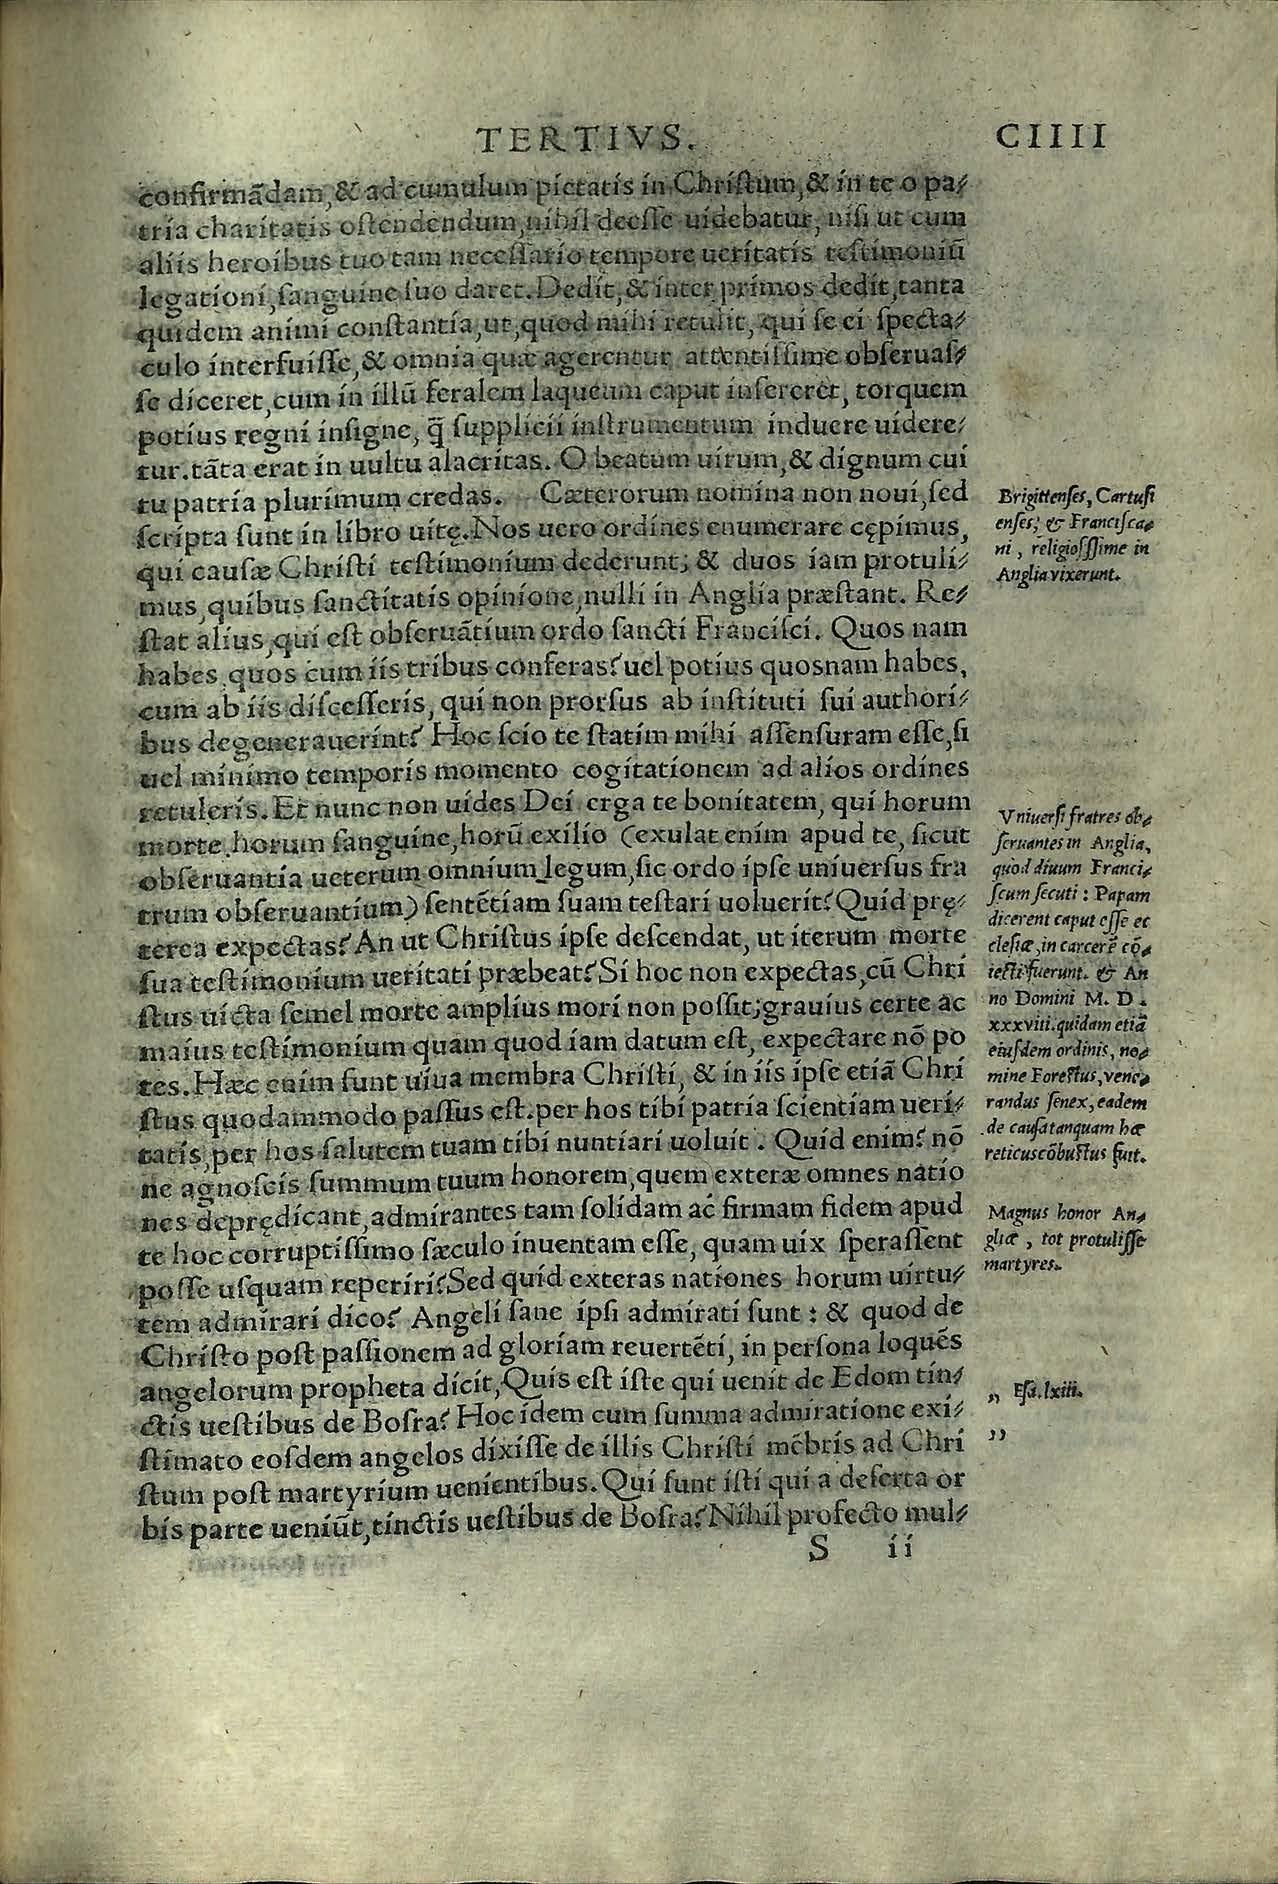 TERTIVS.
CIIII
confirmãdam, & ad cumulum pietatis in Chriſtum, & in te o pa⸗
tria charitatis oſtendendum, nihil deeſſe uidebatur, niſi ut cum
aliis heroibus tuo tam neceſſario tempore ueritatis teſtimoniũ
legationi, ſanguine ſuo daret. Dedit, & inter primos dedit, tanta
quidem animi conſtantia, ut, quod mihi retulit, qui ſe ei ſpecta⸗
culo interfuiſſe, & omnia quæ agerentur attentiſſime obſeruaſ⸗
ſe diceret, cum in illũ feralem laqueum caput inſereret, torquem
potius regni inſigne, q̃ ſupplicii inſtrumentum induere uidere⸗
tur. tãta erat in uultu alacritas. O beatum uirum, & dignum cui
tu patria plurimum credas. Cæterorum nomina non noui, ſed
ſcripta ſunt in libro uitę. Nos uero ordines enumerare cępimus,
qui cauſæ Chriſti teſtimonium dederunt; & duos iam protuli⸗
mus, quibus ſanctitatis opinione, nulli in Anglia præſtant. Re⸗
ſtat alius, qui eſt obſeruãtium ordo ſancti Franciſci. Quos nam
habes, quos cum iis tribus conferas? uel potius quosnam habes,
cum ab iis diſceſſeris, qui non prorſus ab inſtituti ſui authori⸗
bus degenerauerint? Hoc ſcio te ſtatim mihi aſſenſuram eſſe, ſi
uel minimo temporis momento cogitationem ad alios ordines
retuleris. Et nunc non uides Dei erga te bonitatem, qui horum
morte, horum ſanguine, horũ exilio (exulat enim apud te, ſicut
obſeruantia ueterum omnium legum, ſic ordo ipſe uniuerſus fra
trum obſeruantium) ſentẽtiam ſuam teſtari uoluerit? Quid prę⸗
terea expectas? An ut Chriſtus ipſe deſcendat, ut iterum morte
ſua teſtimonium ueritati præbeat? Si hoc non expectas, cũ Chri
ſtus uicta ſemel morte amplius mori non poſſit; grauius certe ac
maius teſtimonium quam quod iam datum eſt, expectare nõ po
tes. Hæc enim ſunt uiua membra Chriſti, & in iis ipſe etiã Chri
ſtus quodammodo paſſus eſt. per hos tibi patria ſcientiam ueri⸗
tatis, per hos ſalutem tuam tibi nuntiari uoluit. Quid enim? nõ
ne agnoſcis ſummum tuum honorem, quem exteræ omnes natio
nes deprędicant, admirantes tam ſolidam ac firmam fidem apud
te hoc corruptiſſimo ſæculo inuentam eſſe, quam uix ſperaſſent
poſſe uſquam reperiri? Sed quid exteras nationes horum uirtu⸗
tem admirari dico? Angeli ſane ipſi admirati ſunt: & quod de
Chriſto poſt paſſionem ad gloriam reuertẽti, in perſona loquẽs
angelorum propheta dicit, Quis eſt iſte qui uenit de Edom tin⸗
ctis ueſtibus de Boſra? Hoc idem cum ſumma admiratione exi⸗
ſtimato eoſdem angelos dixiſſe de illis Chriſti mẽbris ad Chri
ſtum poſt martyrium uenientibus. Qui ſunt iſti qui a deſerta or
bis parte ueniũt, tinctis ueſtibus de Boſra? Nihil profecto mul⸗
S ii
Brigittenſes, Cartuſi
enſes, & Franciſca⸗
ni, religioſſſime in
Anglia vixerunt.
Vniuerſi fratres ob⸗
ſeruantes in Anglia,
quòd diuum Franci⸗
ſcum ſecuti: Papam
dicerent caput eſſe ec
cleſiæ, in carcerẽ cõ⸗
iecti fuerunt. & An
no Domini M. D.
xxxviii. quidam etiã
eiuſdem ordinis, no⸗
mine Foreſtus, vene⸗
randus ſenex, eadem
de cauſa tanquam hæ
reticus cõbuſtus fuit.
Magnus honor An⸗
gliæ, tot protuliſſe
martyres.
„ Eſa. lxiii.
”